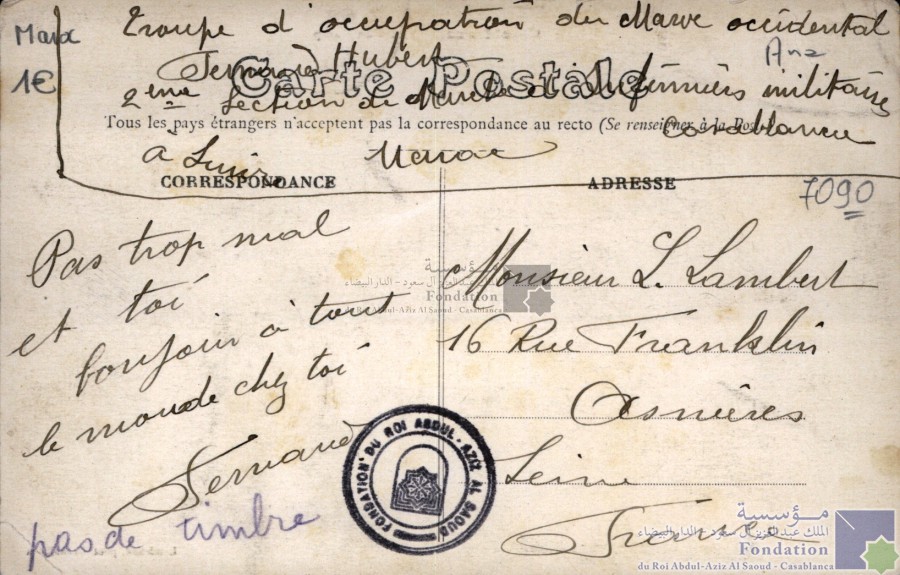 Maroc
1€
Troupe d'occupation du Maroc occidental
Fernand Hubert
Carte Postale
2ème section de Marche d'infirmiers militaires
Tous les pays étrangers n'acceptent pas la correspondance au recto (Se renseigner à la Poste)
Casablanca
à Maroc
CORRESPONDANCE
ADRESSE
7090
Pas trop mal
et toi
bonjour à tout
le monde chez toi
Fernand
pas de timbre
Monsieur L. Lambert
16 Rue Franklin
Asnières
Seine
France
FONDATION DU ROI ABDUL-AZIZ AL SAOUD
مؤسسة
الملك عبد العزيز آل سعود - الدار البيضاء
Fondation
du Roi Abdul-Aziz Al Saoud - Casablanca
مؤسسة
الملك عبد العزيز آل سعود - الدار البيضاء
Fondation
du Roi Abdul-Aziz Al Saoud - Casablanca